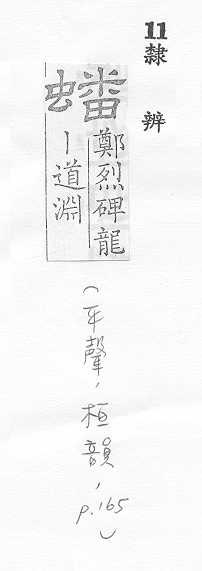 11
隸辨
蟠
鄭烈碑龍
丨道淵
(平聲,桓韻,p.165)